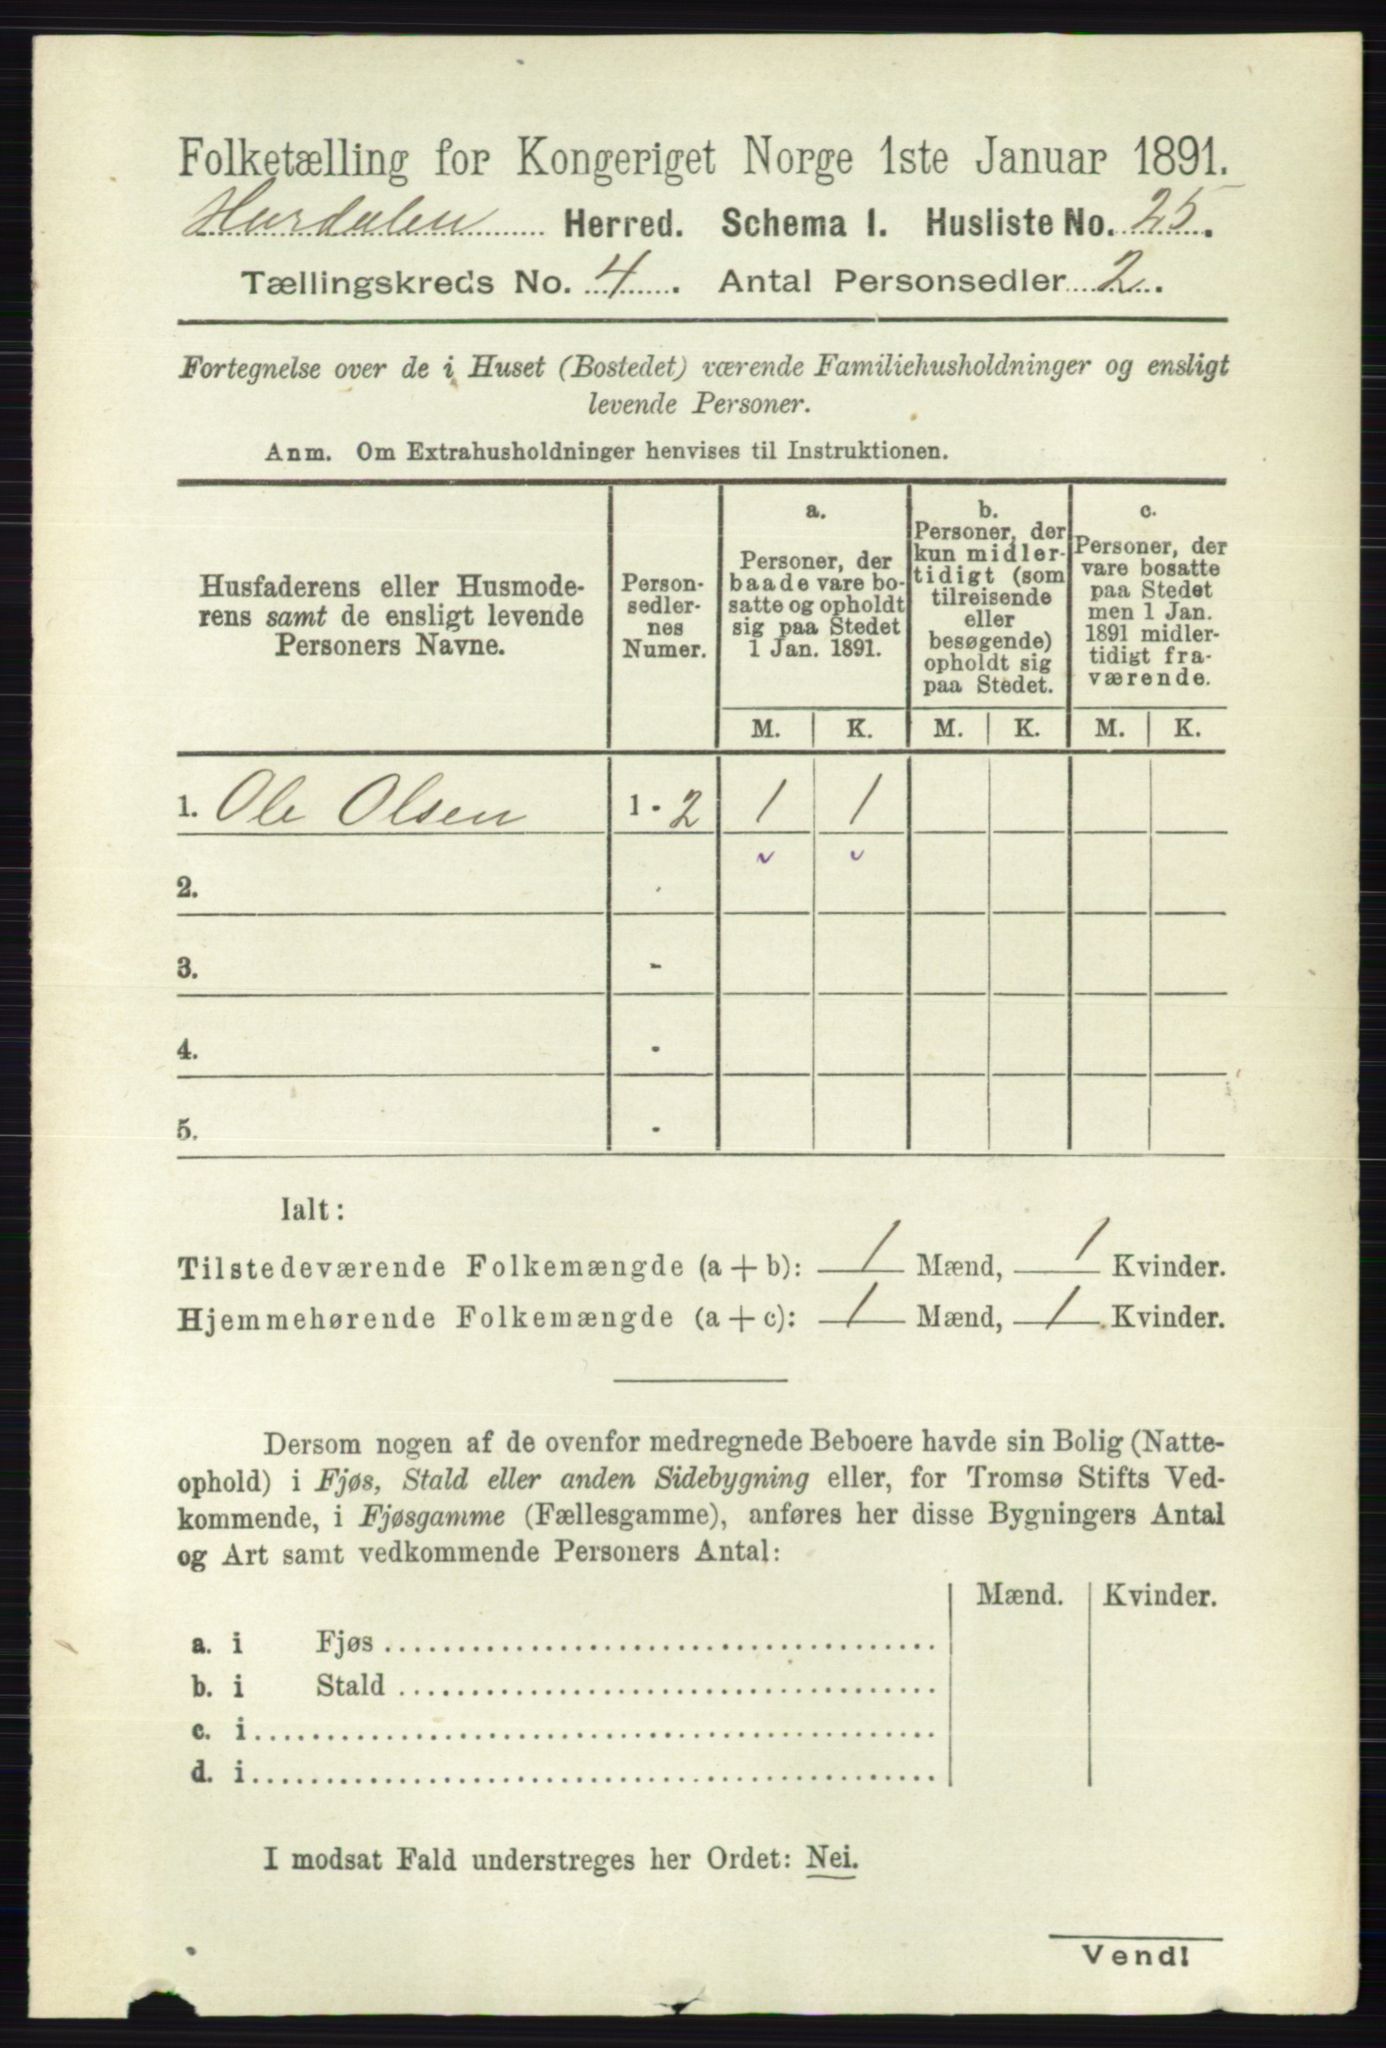 Folketælling for Kongeriget Norge 1ste Januar 1891.
Hurdalen Herred. Schema I. Husliste No. 25.
Tællingskreds No. 4. Antal Personsedler 2.
Fortegnelse over de i Huset (Bostedet) værende Familiehusholdninger og ensligt
levende Personer.
Anm. Om Extrahusholdninger henvises til Instruktionen.
Husfaderens eller Husmode-
rens samt de ensligt levende
Personers Navne.
Person-
sedler-
nes
Numer.
a.
Personer, der
baade vare bo-
satte og opholdt
sig paa Stedet
1 Jan. 1891.
b.
Personer, der
kun midler-
tidigt (som
tilreisende
eller
besøgende)
opholdt sig
paa Stedet.
c.
Personer, der
vare bosatte
paa Stedet
men 1 Jan.
1891 midler-
tidigt fra-
værende.
M. K. M. K. M. K.
1. Ole Olsen 1 - 2 1 1
2. -
3. -
4. -
5. -
Ialt:
Tilstedeværende Folkemængde (a + b): 1 Mænd, 1 Kvinder.
Hjemmehørende Folkemængde (a + c): 1 Mænd, 1 Kvinder.
Dersom nogen af de ovenfor medregnede Beboere havde sin Bolig (Natte-
ophold) i Fjøs, Stald eller anden Sidebygning eller, for Tromsø Stifts Ved-
kommende, i Fjøsgamme (Fællesgamme), anføres her disse Bygningers Antal
og Art samt vedkommende Personers Antal:
Mænd. Kvinder.
a. i Fjøs
b. i Stald
c. i
d. i
I modsat Fald understreges her Ordet: Nei.
Vend!